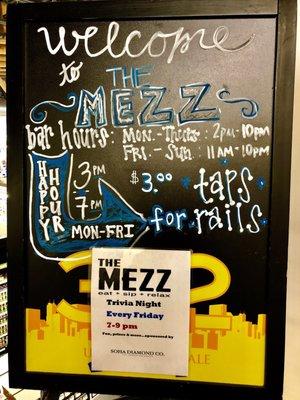 welcome
to THE
MEZZ
bar hours: Mon.-Thurs: 2pm-10pm
Fri.-Sun: 11am-10pm
HAPPY HOUR
3pm
-
7pm
MON-FRI
$3.00 taps
for rails
THE
MEZZ
eat • sip • relax
Trivia Night
Every Friday
7-9 pm
Fun, prizes & more...sponsored by
SOHA DIAMOND CO.